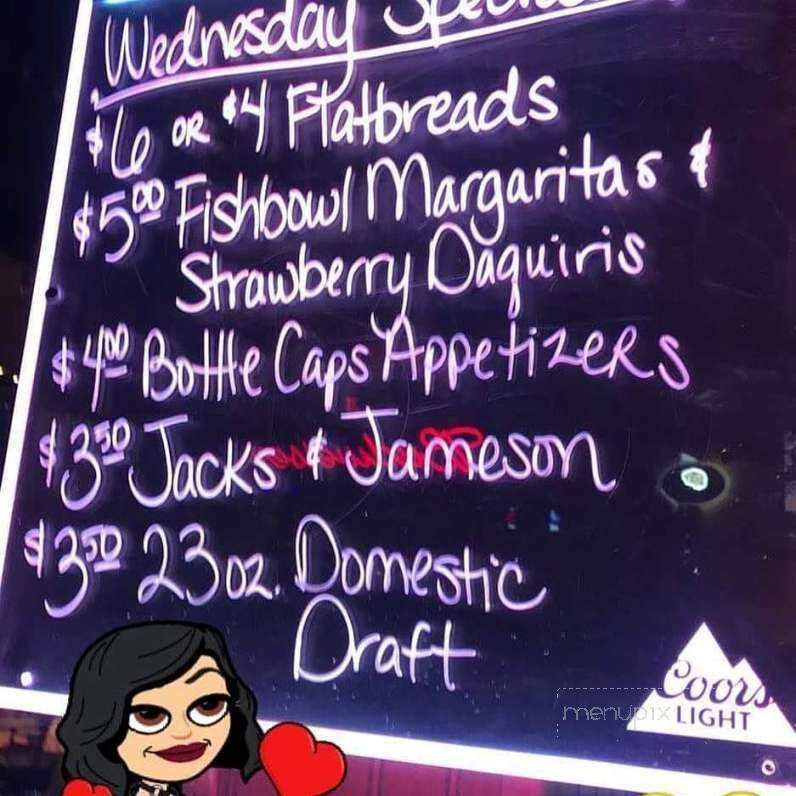 Wednesday Specials
$6 OR $4 Flatbreads
$5.00 Fishbowl Margaritas &
Strawberry Daquiris
$4.00 Bottle Caps Appetizers
$3.50 Jacks & Jameson
$3.50 23oz. Domestic
Draft
Coors
LIGHT
menupix